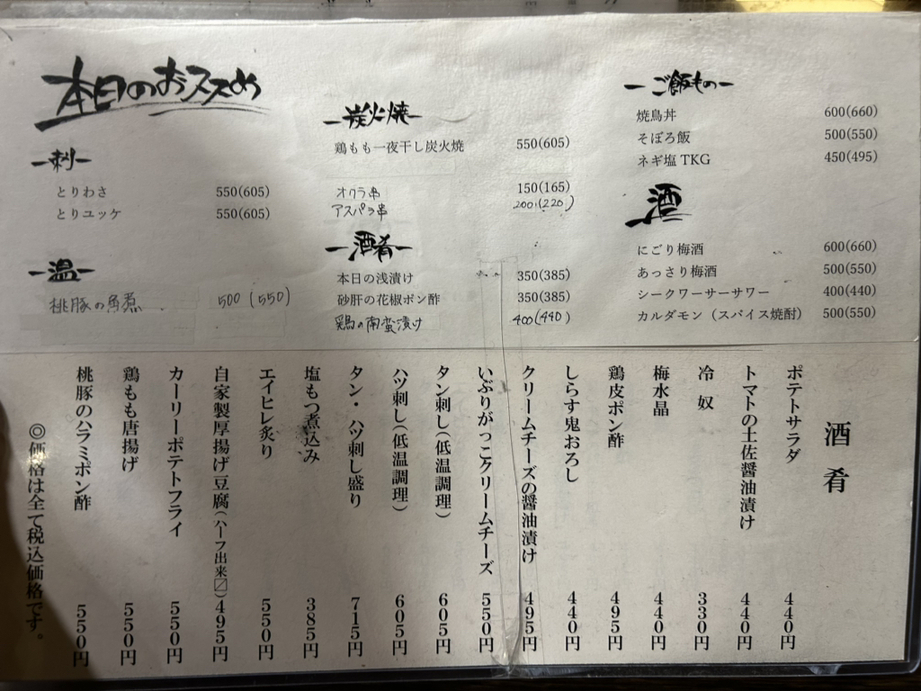 本日のおススメ
刺
とりわさ 550(605)
とりユッケ 550(605)
温
桃豚の角煮 500(550)
炭火焼
鶏もも一夜干し炭火焼 550(605)
オクラ串 150(165)
アスパラ串 200(220)
酒肴
本日の浅漬け 350(385)
砂肝の花椒ポン酢 350(385)
鶏の南蛮漬け 400(440)
ご飯もの
焼鳥丼 600(660)
そぼろ飯 500(550)
ネギ塩TKG 450(495)
酒
にごり梅酒 600(660)
あっさり梅酒 500(550)
シークワーサーサワー 400(440)
カルダモン（スパイス焼酎） 500(550)
酒肴
ポテトサラダ 440円
トマトの土佐醤油漬け 440円
冷奴 330円
梅水晶 440円
鶏皮ポン酢 495円
しらす鬼おろし 440円
クリームチーズの醤油漬け 495円
いぶりがっこクリームチーズ 550円
タン刺し（低温調理） 605円
ハツ刺し（低温調理） 605円
タン・ハツ刺し盛り 715円
塩もつ煮込み 385円
エイヒレ炙り 550円
自家製厚揚げ豆腐（ハーフ出来〼） 495円
カーリーポテトフライ 550円
鶏もも唐揚げ 550円
桃豚のハラミポン酢 550円
◎価格は全て税込価格です。